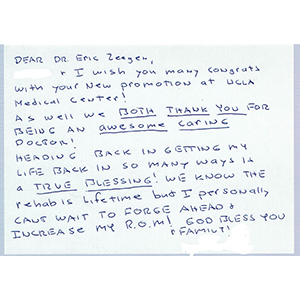 DEAR DR. Eric Zeegen,
+ I wish you many congrats
with your new promotion at UCLA
Medical Center!
As well we BOTH THANK YOU FOR
BEING AN awesome caring
DOCTOR!
HEADING BACK IN GETTING MY
LIFE BACK IN SO MANY WAYS is
a TRUE BLESSING! WE KNOW THE
rehab is lifetime but I personally
CANT WAIT TO FORGE AHEAD &
INCREASE MY R.O.M! GOD BLESS YOU
& FAMILY!